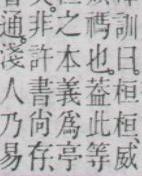 訓曰桓桓、威
禡也。蓋此等
之本義爲亭
非許書尚存、
通。淺人乃易